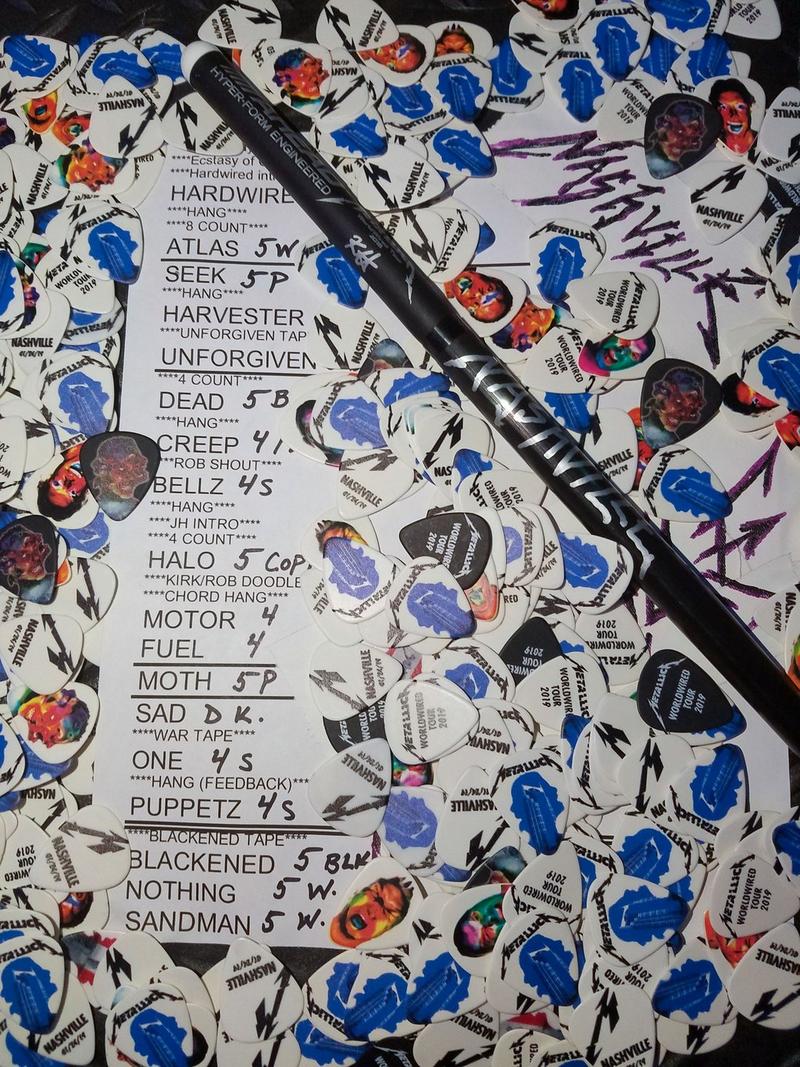 HYPER-FORM ENGINEERED
****Ecstasy of
****Hardwired
HARDWIRE
****HANG****
****8 COUNT****
ATLAS 5W
SEEK 5P
****HANG****
HARVESTER
****UNFORGIVEN TAP
UNFORGIVEN
****4 COUNT****
DEAD 5B
****HANG****
CREEP 4
****ROB SHOUT****
BELLZ 4S
****HANG****
****JH INTRO****
****4 COUNT****
HALO 5 COP.
****KIRK/ROB DOODLE
****CHORD HANG****
MOTOR 4
FUEL 4
MOTH 5P
SAD DK.
****WAR TAPE****
ONE 4S
****HANG (FEEDBACK)****
PUPPETZ 4S
****BLACKENED TAPE****
BLACKENED 5 BLK
NOTHING 5 W.
SANDMAN 5 W.
NASHVILLE
METALLICA
WORLDWIRED
TOUR
2019
NASHVILLE
01/24/19